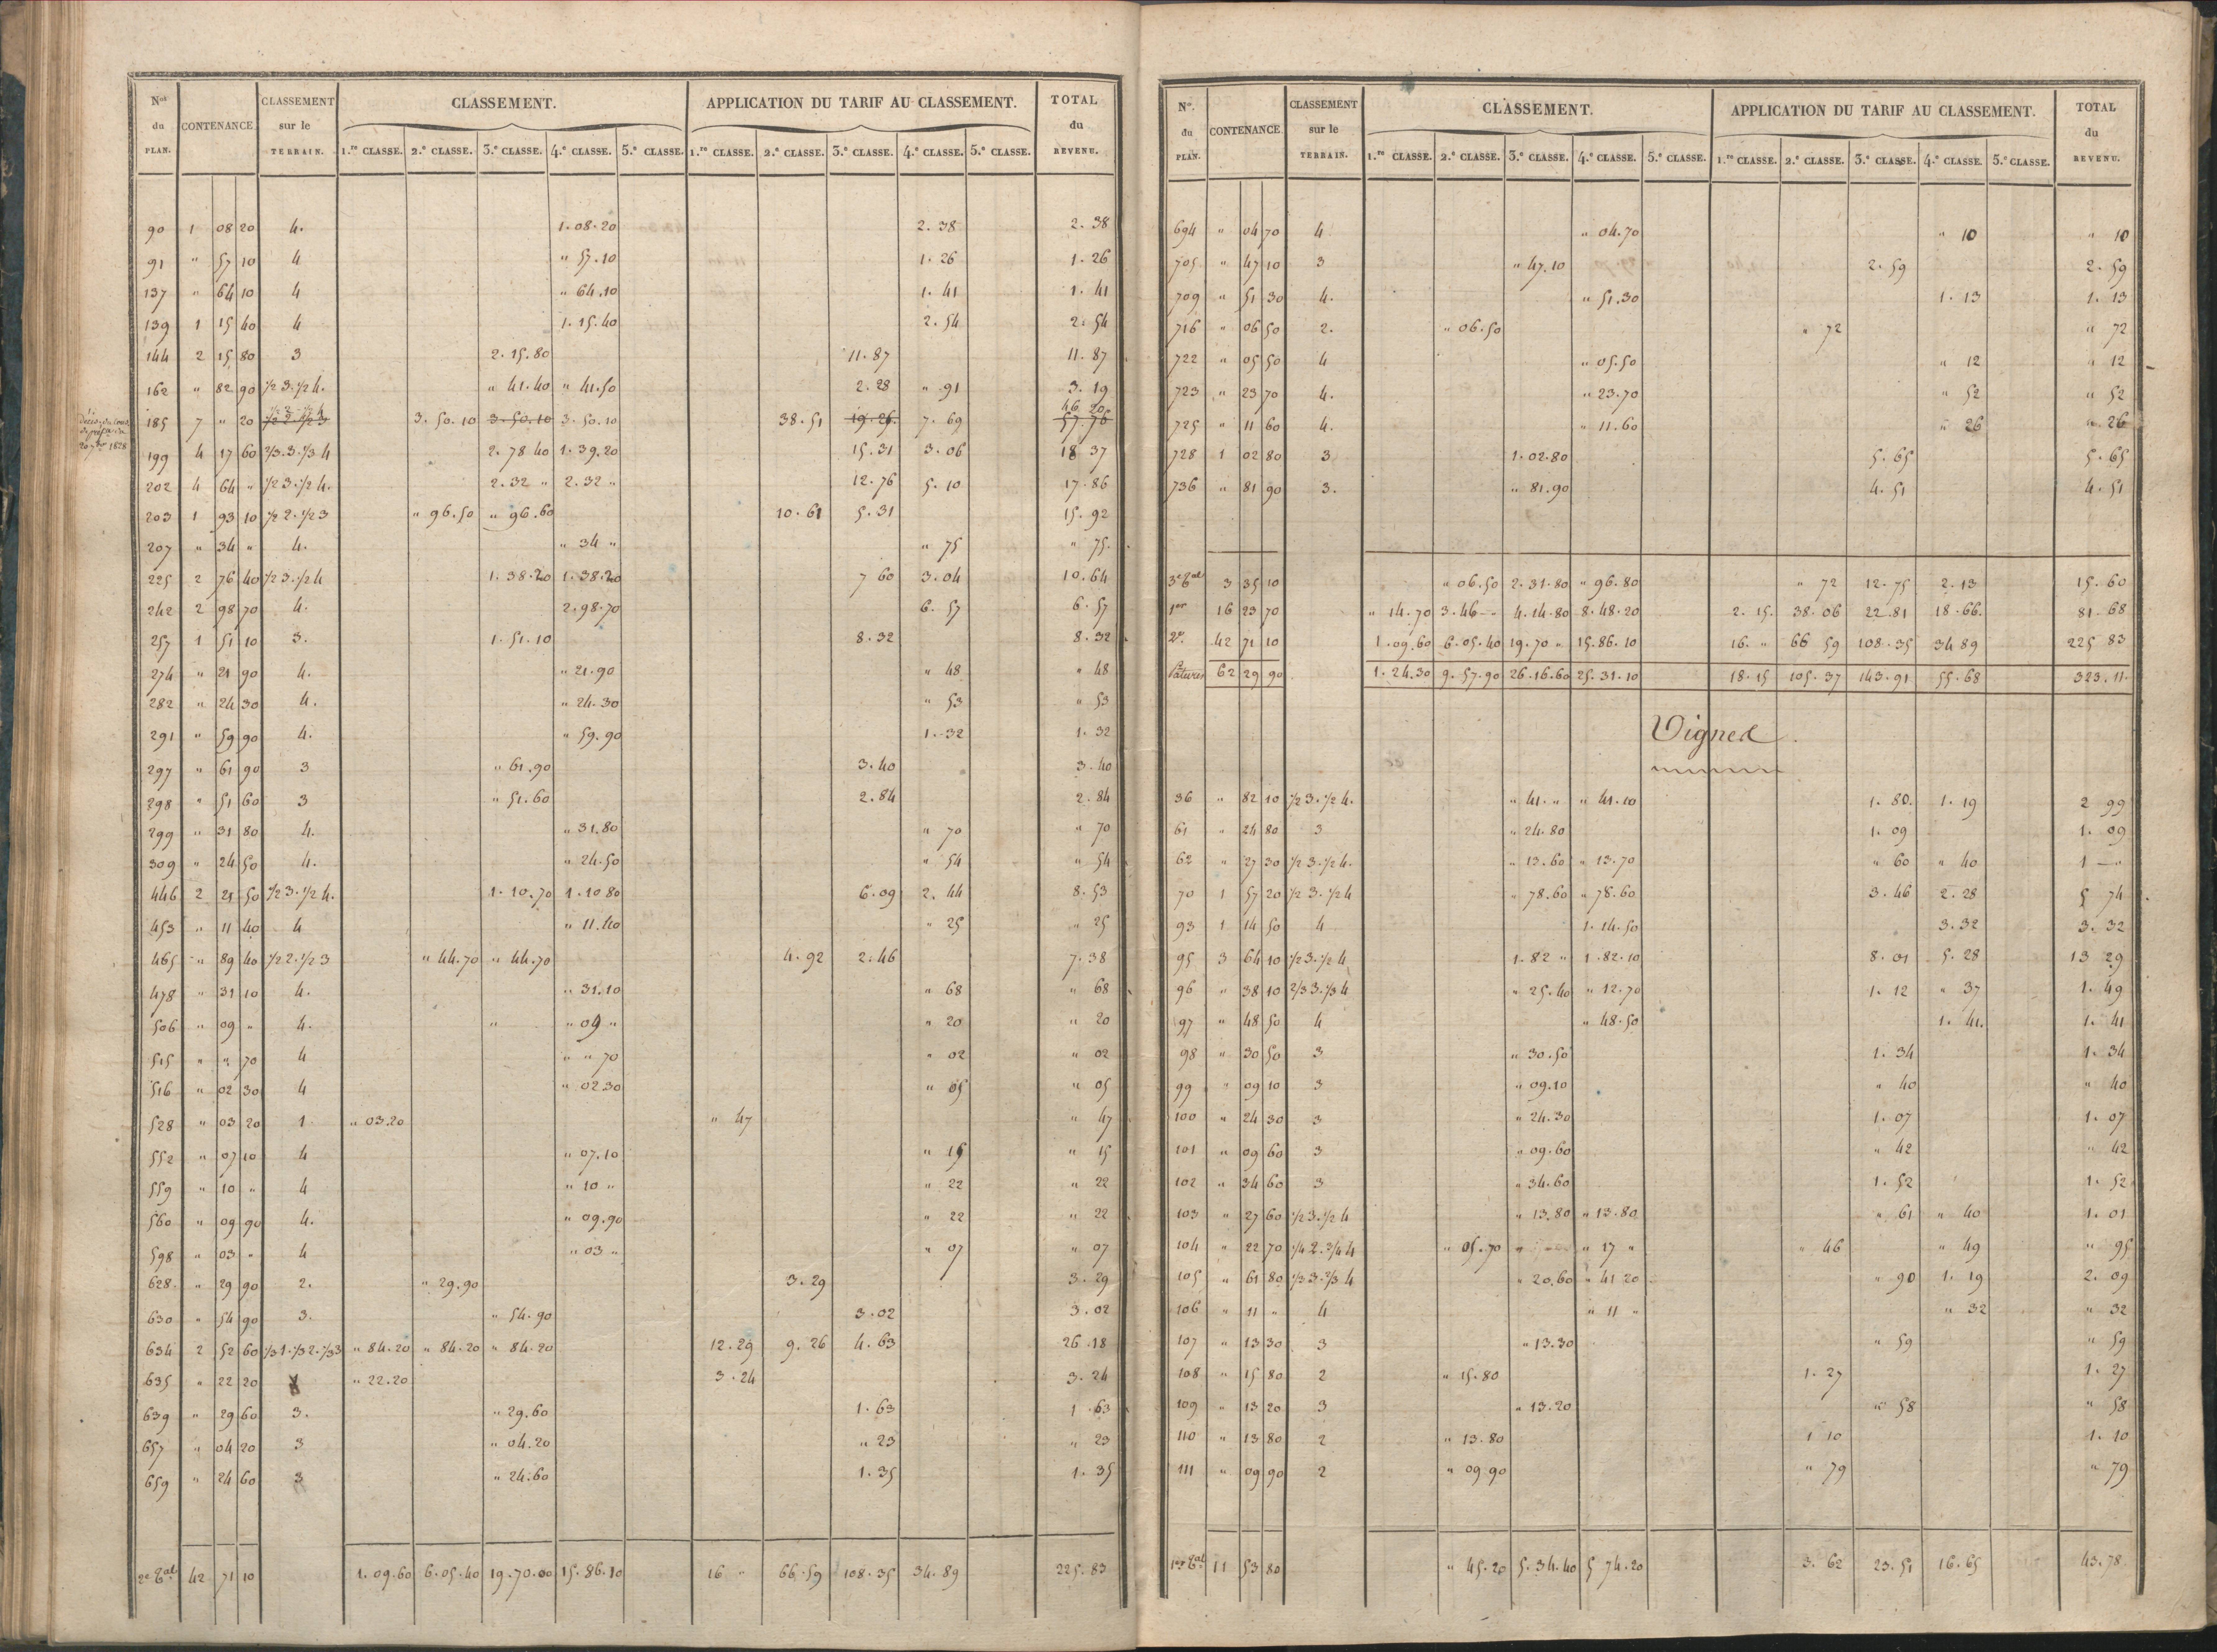 Nos du PLAN. CONTENANCE CLASSEMENT sur le TERRAIN. CLASSEMENT. APPLICATION DU TARIF AU CLASSEMENT. TOTAL du REVENU.
1.re CLASSE. 2.e CLASSE. 3.e CLASSE. 4.e CLASSE. 5.e CLASSE. 1.re CLASSE. 2.e CLASSE. 3.e CLASSE. 4.e CLASSE. 5.e CLASSE.
90 1 08 20 4. 1.08.20 2.38 2.38
91 " 57 10 4 " 57.10 1.26 1.26
137 " 64 10 4 " 64.10 1.41 1.41
139 1 15 40 4 1.15.40 2.54 2.54
144 2 15 80 3 2.15.80 11.87 11.87
162 " 82 90 1/2 3. 1/2 4. " 41.40 " 41.50 2.28 " 91 3.19
185 7 " 20 1/2 2 1/2 3 1/2 2 1/2 4 3.50.10 3.50.10 3.50.10 38.51 19.25 7.69 57.76 46 20
20 7bre 1828
199 4 17 60 2/3.3.1/3 4 2.78 40 1.39.20 15.31 3.06 18 37
202 4 64 " 1/2 3. 1/2 4. 2.32 " 2.32 " 12.76 5.10 17.86
203 1 93 10 1/2 2. 1/2 3 " 96.50 " 96.60 10.61 5.31 15.92
207 " 34 " 4. " 34 " " 75 " 75.
225 2 76 40 1/2 3. 1/2 4 1.38.20 1.38.20 7 60 3.04 10.64
242 2 98 70 4. 2.98.70 6.57 6.57
257 1 51 10 3. 1.51.10 8.32 8.32
274 " 21 90 4. " 21.90 " 48 " 48
282 " 24 30 4. " 24.30 " 53 " 53
291 " 59 90 4. " 59.90 1.32 1.32
297 " 61 90 3 " 61.90 3.40 3.40
298 " 51 60 3 " 51.60 2.84 2.84
299 " 31 80 4. " 31.80 " 70 " 70
309 " 24 50 4. " 24.50 " 54 " 54
446 2 21 50 1/2 3. 1/2 4. 1.10.70 1.10 80 6.09 2.44 8.53
453 " 11 40 4 " 11.40 " 25 " 25
465 " 89 40 1/2 2. 1/2 3 " 44.70 " 44.70 4.92 2.46 7.38
478 " 31 10 4. " 31.10 " 68 " 68
506 " 09 " 4. " " 09 " " 20 " 20
515 " " 70 4 " " 70 " 02 " 02
516 " 02 30 4 " 02.30 " 05 " 05
528 " 03 20 1 " 03.20 " 47 " 47
552 " 07 10 4 " 07.10 " 15 " 15
559 " 10 " 4 " 10 " " 22 " 22
560 " 09 90 4. " 09.90 " 22 " 22
598 " 03 " 4 " 03 " " 07 " 07
628. " 29 90 2. " 29.90 3.29 3.29
630 " 54 90 3. " 54.90 3.02 3.02
634 2 52 60 1/3 1. 1/3 2. 1/3 3 " 84.20 " 84.20 " 84.20 12.29 9.26 4.63 26.18
635 " 22 20 " 22.20 3.24 3.24
639 " 29 60 3. " 29.60 1.63 1.63
657 " 04 20 3 " 04.20 " 23 " 23
659 " 24 60 3 " 24.60 1.35 1.35
2e Tal 42 71 10 1.09.60 6.05.40 19.70.00 15.86.10 16 " 66.59 108.35 34.89 225.83
Nos. du PLAN. CONTENANCE CLASSEMENT sur le TERRAIN. CLASSEMENT. APPLICATION DU TARIF AU CLASSEMENT. TOTAL du REVENU.
1.re CLASSE. 2.e CLASSE. 3.e CLASSE. 4.e CLASSE. 5.e CLASSE. 1.re CLASSE. 2.e CLASSE. 3.e CLASSE. 4.e CLASSE. 5.e CLASSE.
694 " 04 70 4 " 04.70 " 10 " 10
705 " 47 10 3 " 47.10 2.59 2.59
709 " 51 30 4. " 51.30 1.13 1.13
716 " 06 50 2. " 06.50 " 72 " 72
722 " 05 50 4 " 05.50 " 12 " 12
723 " 23 70 4. " 23.70 " 52 " 52
725 " 11 60 4. " 11.60 " 26 " 26
728 1 02 80 3 1.02.80 5.65 5.65
736 " 81 90 3. " 81.90 4.51 4.51
3e Tal 3 35 10 " 06.50 2.31.80 " 96.80 " 72 12.75 2.13 15.60
1er 16 23 70 " 14.70 3.46 " 4.14.80 8.48.20 2.15. 38.06 22.81 18.66. 81.68
2e. 42 71 10 1.09.60 6.05.40 19.70 " 15.86.10 16. " 66 59 108.35 34 89 225 83
Patures 62 29 90 1.24.30 9.57.90 26.16.60 25.31.10 18.15 105.37 143.91 55.68 323.11
Vignes
36 " 82 10 1/2 3. 1/2 4. " 41. " " 41.10 1.80. 1.19 2 99
61 " 24 80 3 " 24.80 1.09 1.09
62 " 27 30 1/2 3. 1/2 4. " 13.60 " 13.70 " 60 " 40 1 — "
70 1 57 20 1/2 3. 1/2 4 " 78.60 " 78.60 3.46 2.28 5 74
93 1 14 50 4 1.14.50 3.32 3.32
95 3 64 10 1/2 3. 1/2 4 1.82 " 1.82.10 8.01 5.28 13 29
96 " 38 10 2/3 3. 1/3 4 " 25.40 " 12.70 1.12 " 37 1.49
97 " 48 50 4 " 48.50 1.41. 1.41
98 " 30 50 3 " 30.50 1.34 1.34
99 " 09 10 3 " 09.10 " 40 " 40
100 " 24 30 3 " 24.30 1.07 1.07
101 " 09 60 3 " 09.60 " 42 " 42
102 " 34 60 3 " 34.60 1.52 1.52
103 " 27 60 1/2 3. 1/2 4 " 13.80 " 13.80 " 61 " 40 1.01
104 " 22 70 1/4 2. 3/4 4 " 05.70 " 17 " " 46 " 49 " 95
105 " 61 80 1/3 3. 2/3 4 " 20.60 " 41 20 " 90 1.19 2.09
106 " 11 " 4 " 11 " " 32 " 32
107 " 13 30 3 " 13.30 " 59 " 59
108 " 15 80 2 " 15.80 1.27 1.27
109 " 13 20 3 " 13.20 " 58 " 58
110 " 13 80 2 " 13.80 1 10 1.10
111 " 09 90 2 " 09 90 " 79 " 79
1er Tal 11 53 80 " 45.20 5.34.40 5 74.20 3.62 23.51 16.65 43.78